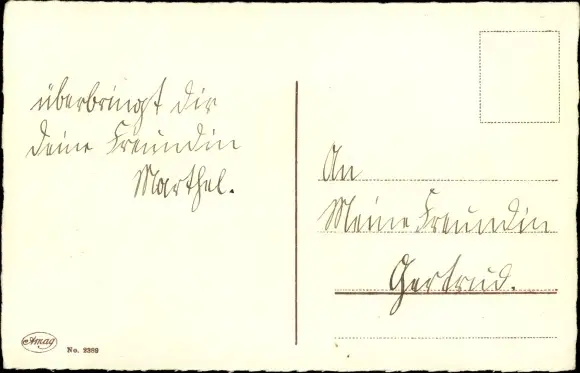 überbringt dir
deine Freundin
Marthel.
An
Meine Freundin
Gertrud.
Amag
No. 2369